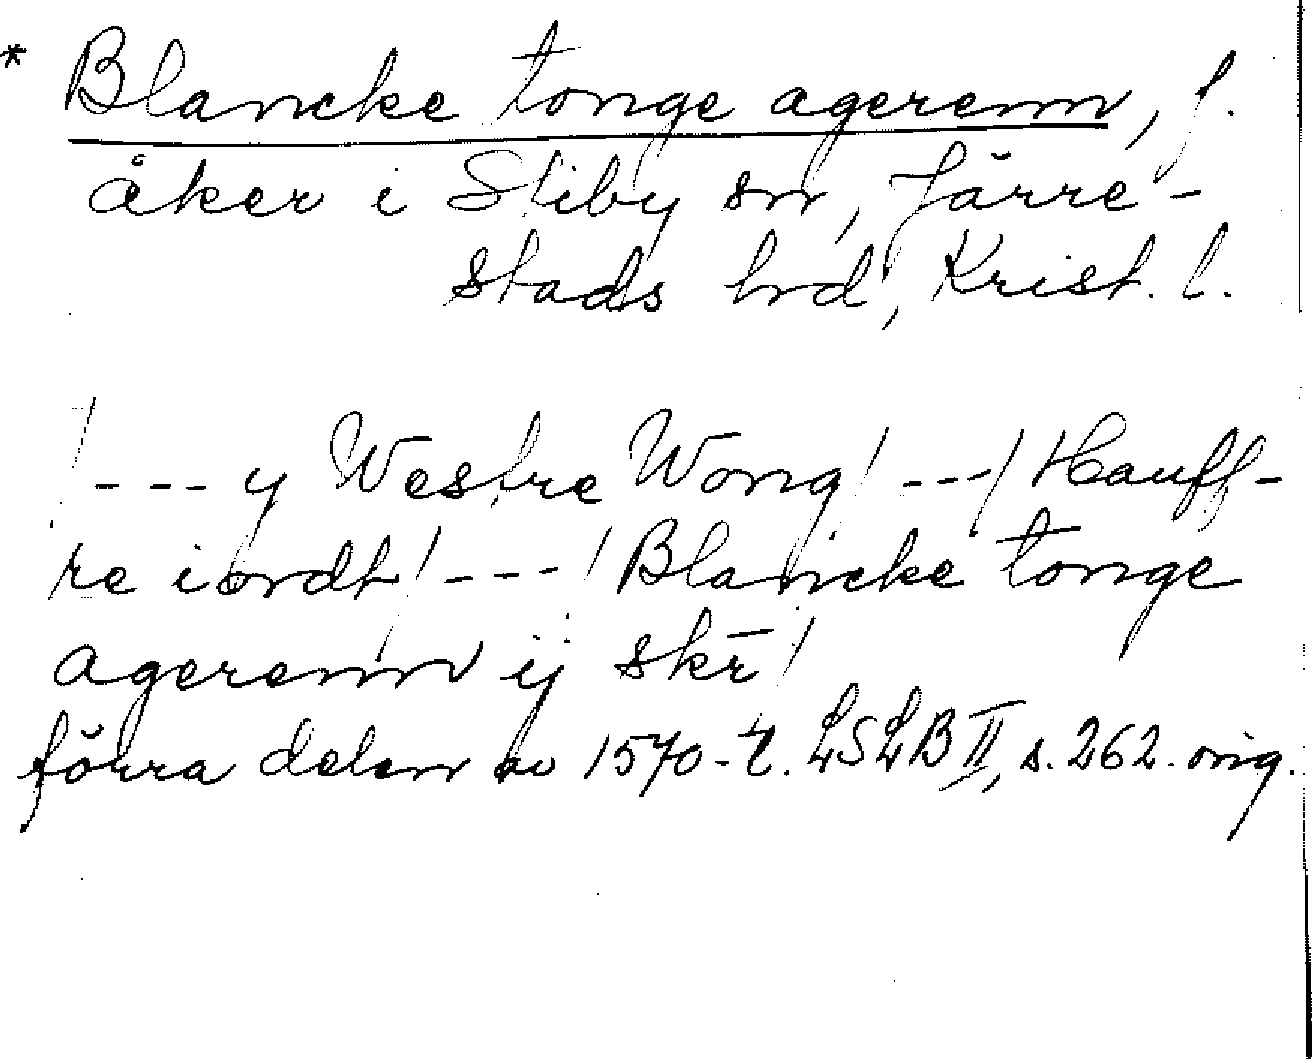 * Blancke tonge agerenn, f.
åker i Stiby sn, Järre-
stads hrd, Krist. l.
/--- y Westre Wong/ ---/ Hauff-
re iordh/ --- / Blancke tonge
agerenn ij skr̄/
förra delen av 1570-t. LSLB II, s. 262. orig.